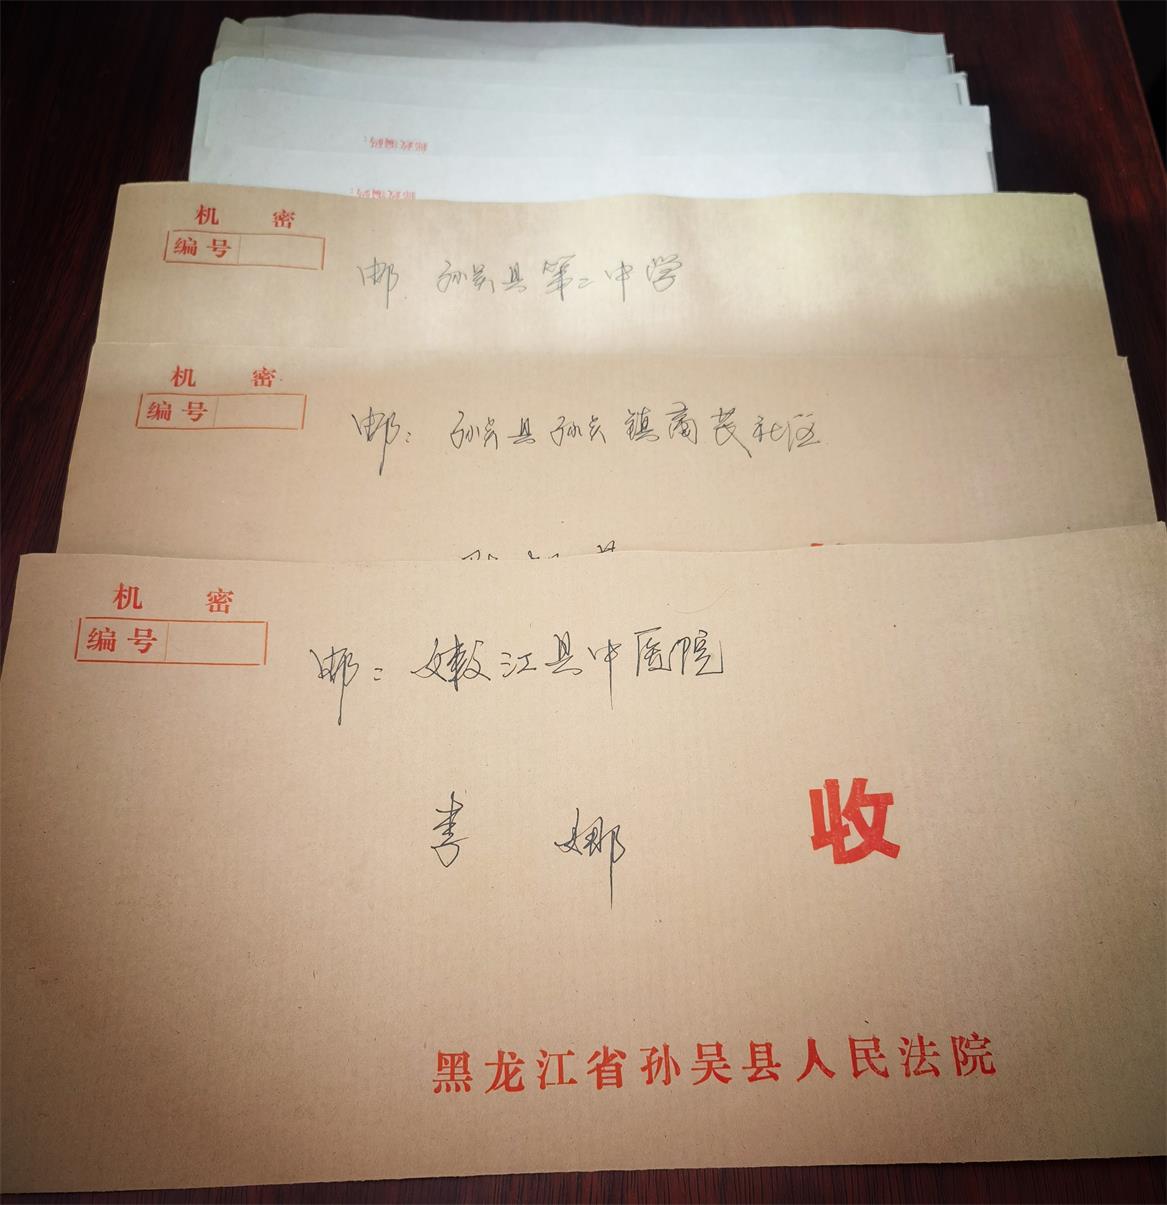 邮政编码：
邮政编码：
机 密
编号
邮 孙吴县第二中学
机 密
编号
邮： 孙吴县孙吴镇商苂社区
机 密
编号
邮： 嫩江县中医院
李 娜
收
黑龙江省孙吴县人民法院